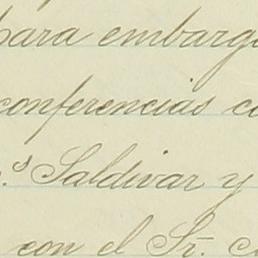 para embarg
conferencias co
.s Saldivar y
con el Sr. c